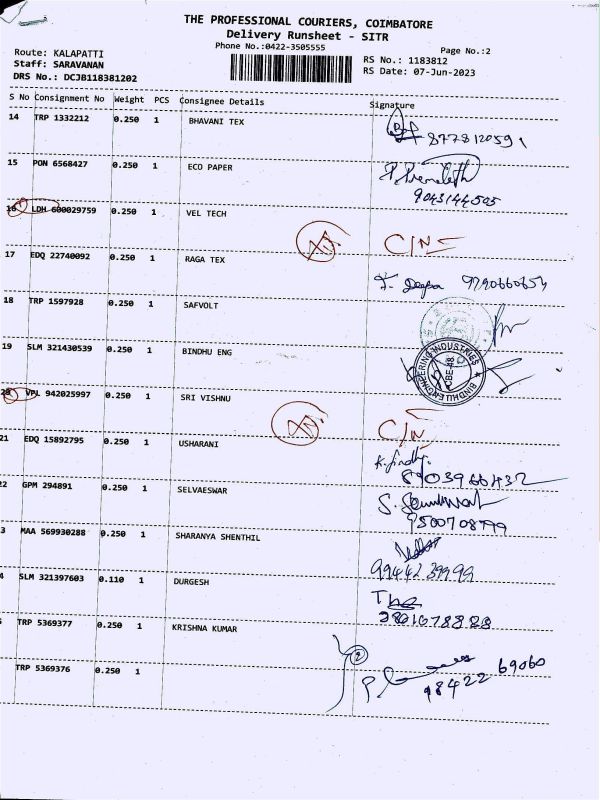 THE PROFESSIONAL COURIERS, COIMBATORE
Delivery Runsheet - SITR
Phone No.:0422-3505555
Page No.:2
Route: KALAPATTI
RS No.: 1183812
Staff: SARAVANAN
RS Date: 07-Jun-2023
DRS No.: DCJB118381202
S No Consignment No Weight PCS Consignee Details Signature
14 TRP 1332212 0.250 1 BHAVANI TEX
8778120591
15 PON 6568427 0.250 1 ECO PAPER
P. Premalatha
9043144505
16 LDH 600029759 0.250 1 VEL TECH
C/NE
17 EDQ 22740092 0.250 1 RAGA TEX
9790660654
18 TRP 1597928 0.250 1 SAFVOLT
19 SLM 321430539 0.250 1 BINDHU ENG
BINDHU ENGINEERING INDUSTRIES
CBE-48
20 VPL 942025997 0.250 1 SRI VISHNU
C/N
21 EDQ 15892795 0.250 1 USHARANI
8903966432
22 GPM 294891 0.250 1 SELVAESWAR
9500708799
3 MAA 569930288 0.250 1 SHARANYA SHENTHIL
9944239999
4 SLM 321397603 0.110 1 DURGESH
TRP 5369377 0.250 1 KRISHNA KUMAR
2
98422 69060
TRP 5369376 0.250 1